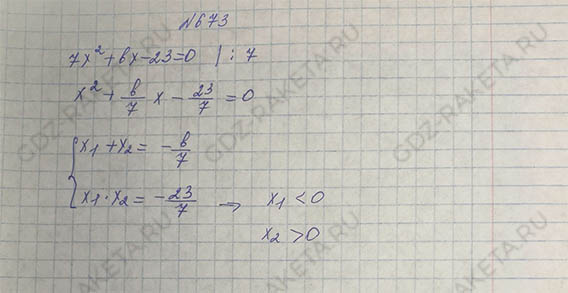 №673
7x² + bx - 23 = 0 | : 7
x² + b/7 x - 23/7 = 0
{ x₁ + x₂ = - b/7
x₁ · x₂ = - 23/7 → x₁ < 0
x₂ > 0
GDZ-RAKETA.RU
GDZ-RAKETA.RU
GDZ-RAKETA.RU
GDZ-RAKETA.RU